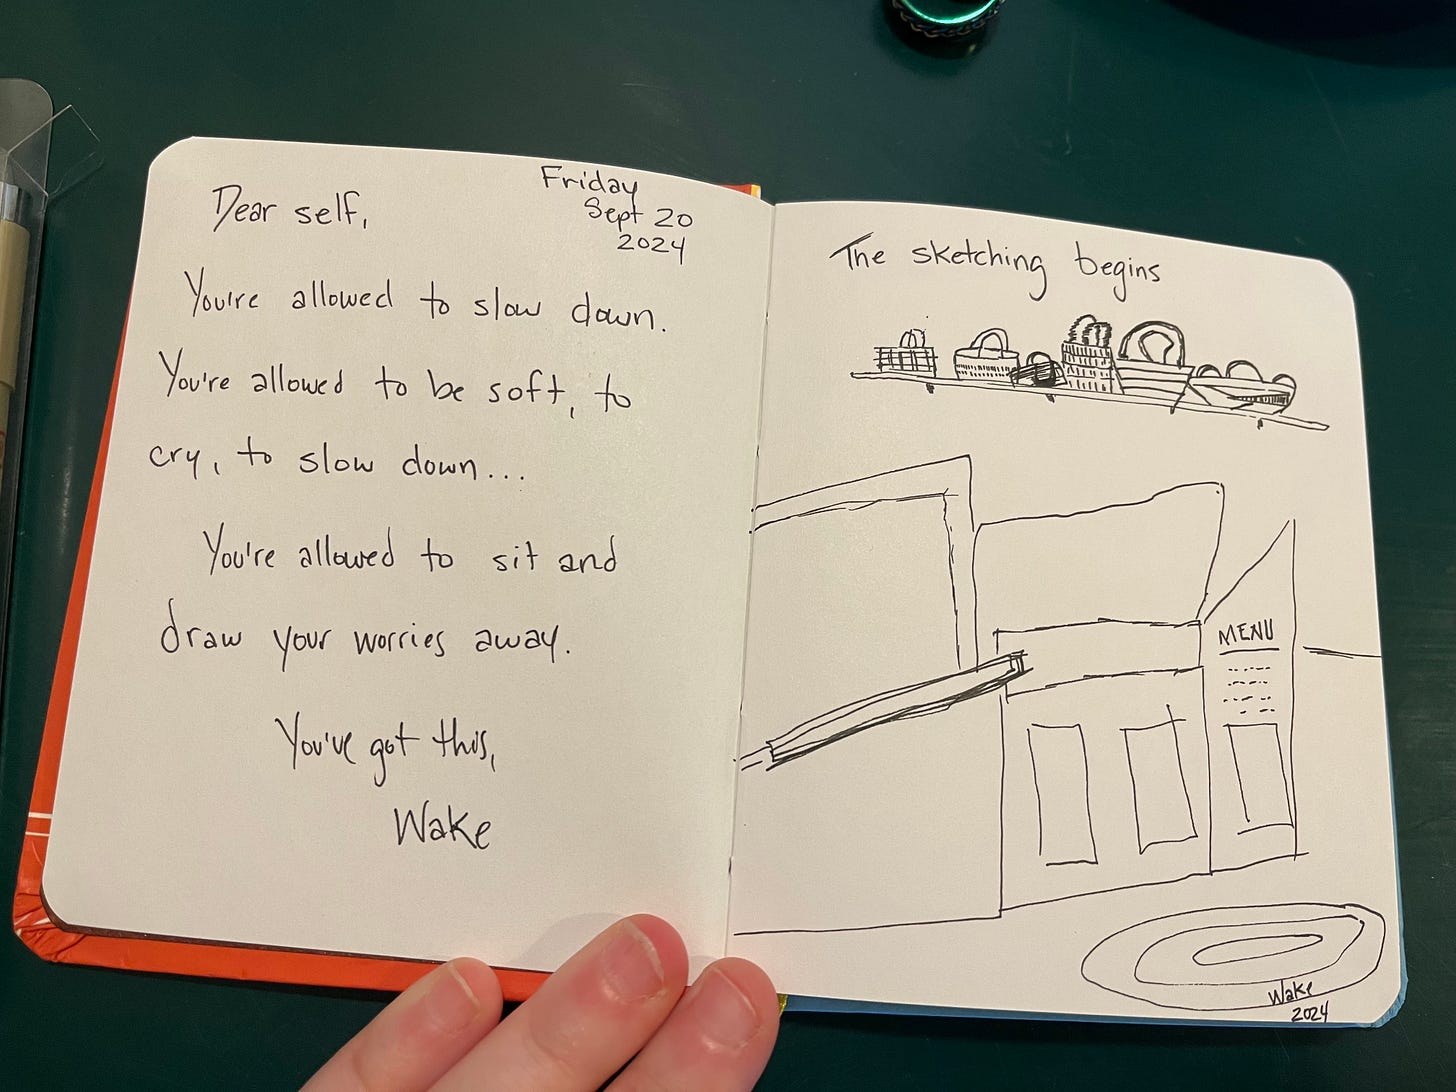 Dear self,
Friday
Sept 20
2024
You're allowed to slow down.
You're allowed to be soft, to
cry, to slow down...
You're allowed to sit and
draw your worries away.
You've got this,
Wake
The sketching begins
MENU
Wake
2024